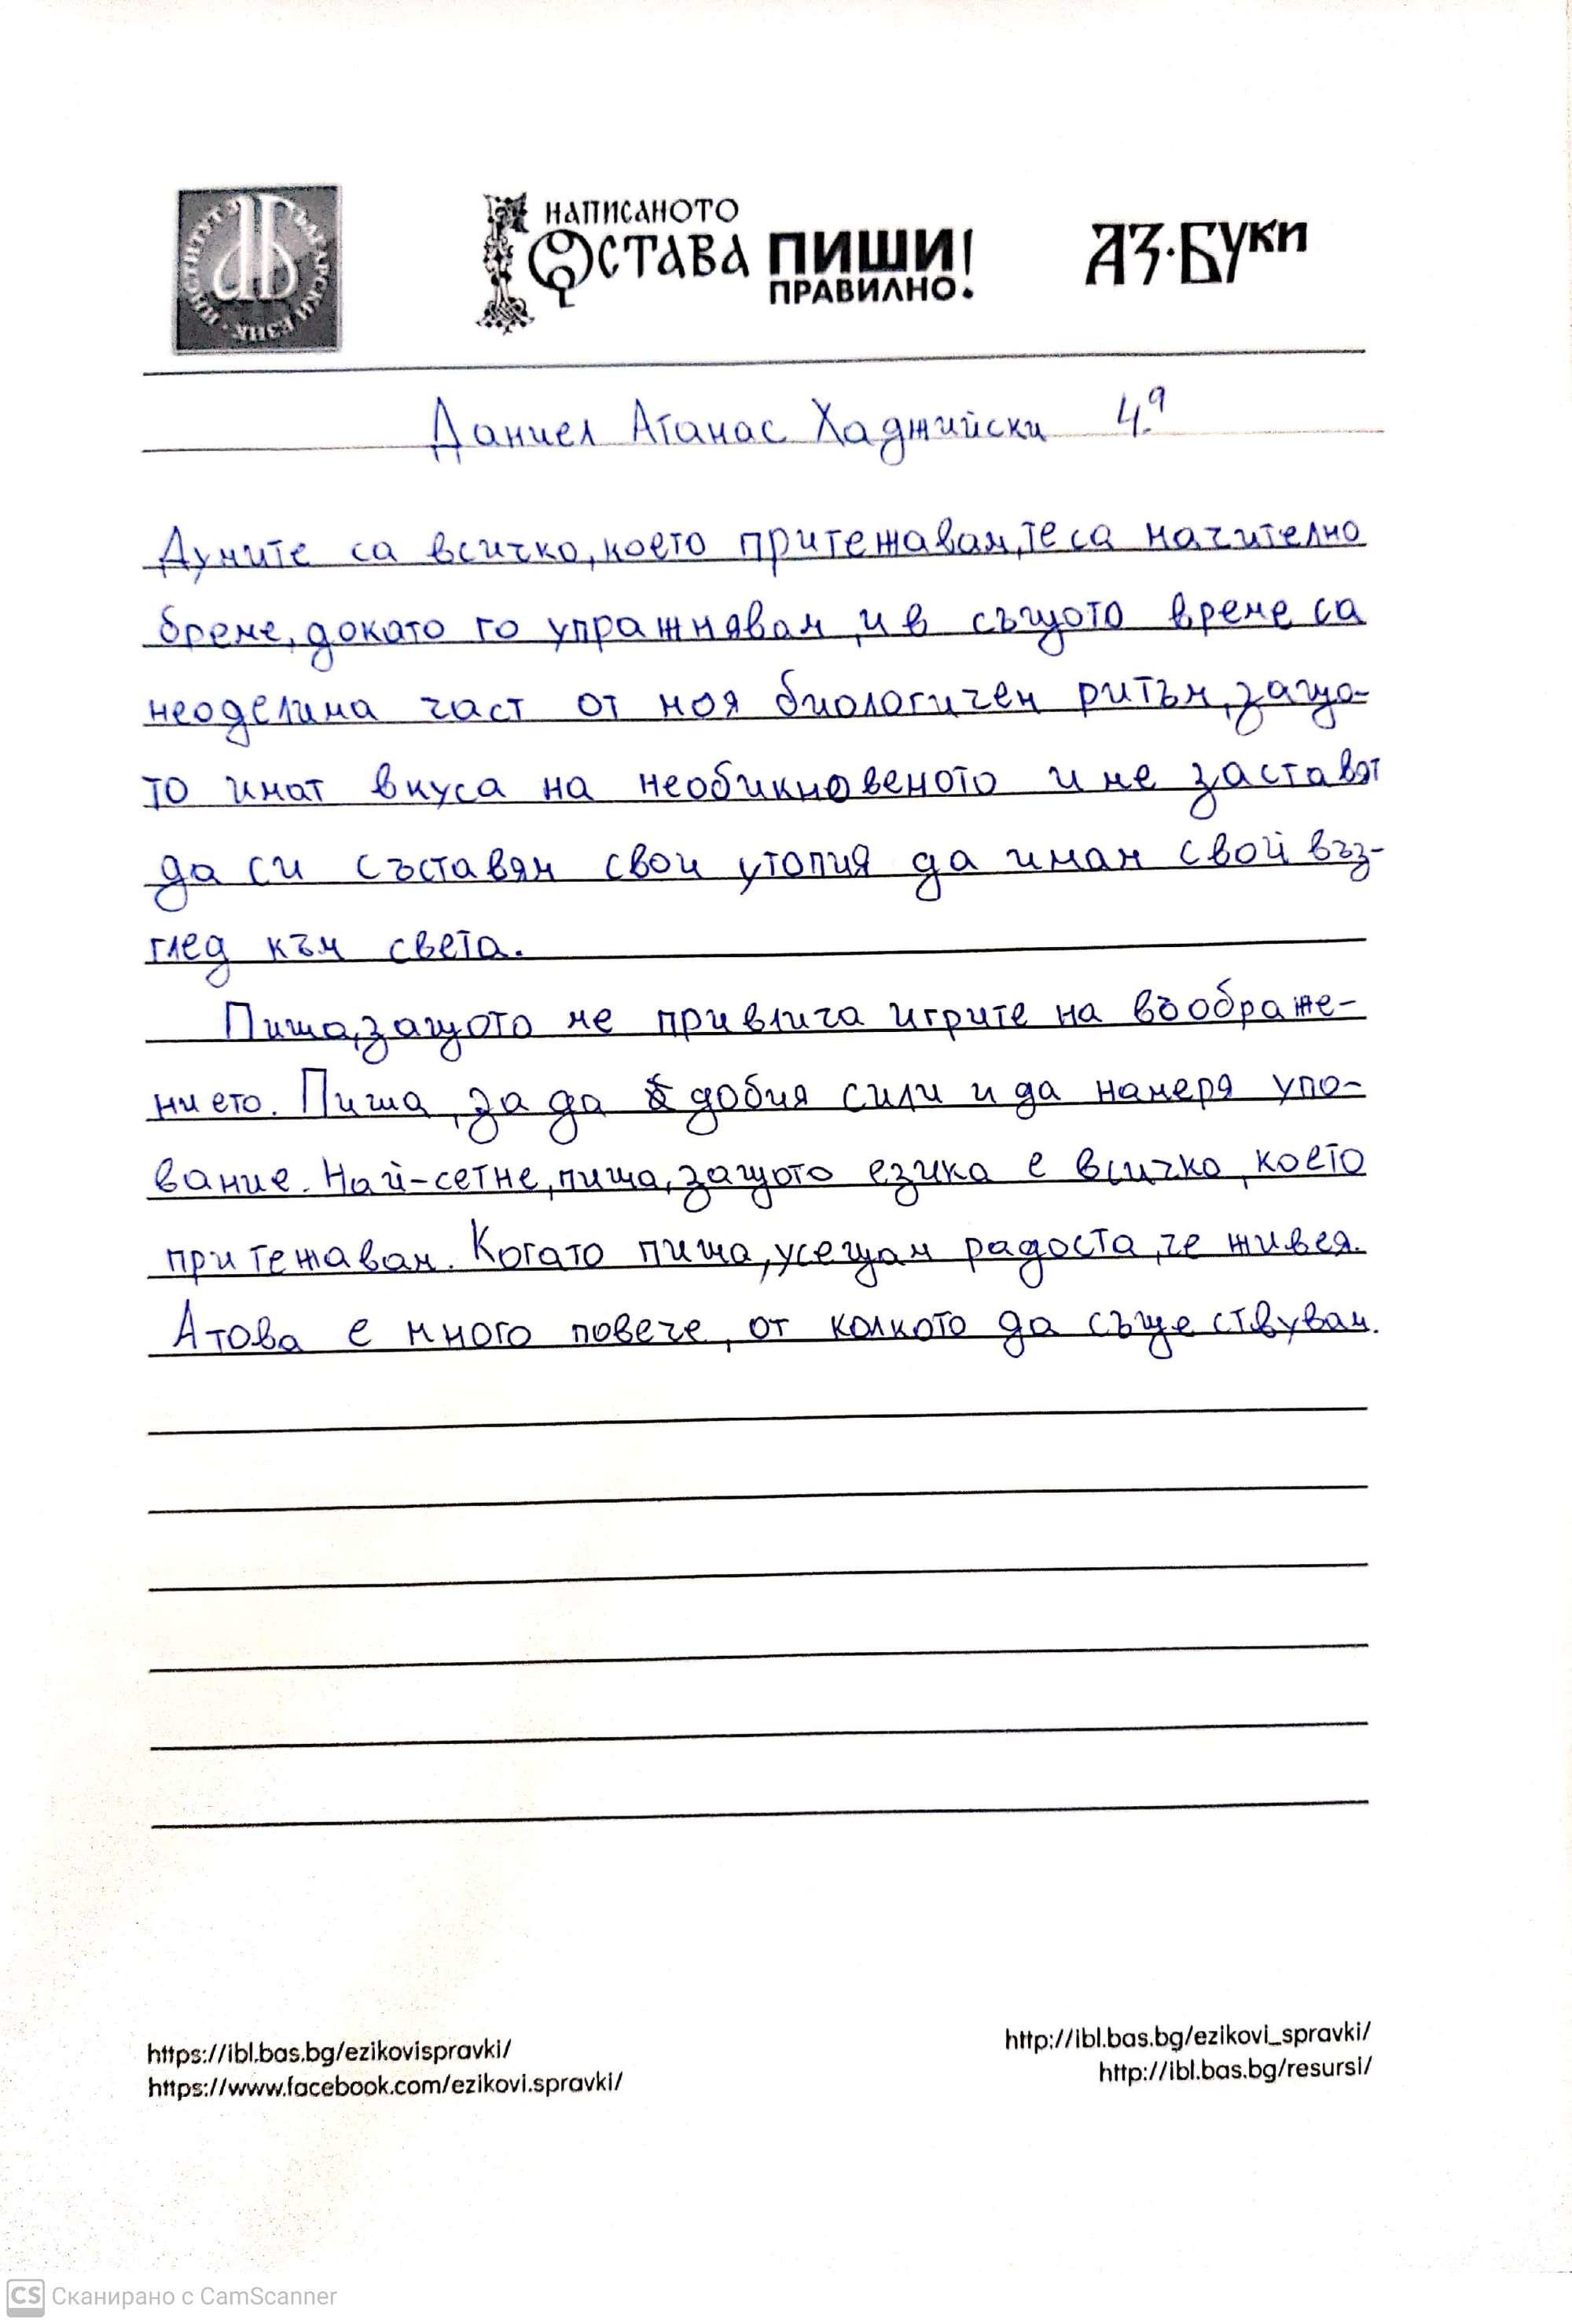 ИНСТИТУТ ЗА БЪЛГАРСКИ ЕЗИК
НАПИСАНОТО
ОСТАВА ПИШИ!
ПРАВИЛНО.
АЗ·БУКИ
Даниел Атанас Хаджийски 4.а
Думите са всичко, което притежавам, те са мачително
бреме, докато го упражнявам, и в същото време са
неоделима част от моя биологичен ритъм, защо-
то имат вкуса на необикновеното и ме заставят
да си съставям свои утопия да имам свой въз-
глед към света.
Пиша, защото ме привлича игрите на въображе-
нието. Пиша, за да добия сили и да намеря упо-
вание. Най-сетне, пиша, защото езика е всичко, което
притежавам. Когато пиша, усещам радоста, че живея.
Атова е много повече, от колкото да съществувам.
https://ibl.bas.bg/ezikovispravki/
https://www.facebook.com/ezikovi.spravki/
http://ibl.bas.bg/ezikovi_spravki/
http://ibl.bas.bg/resursi/
CS Сканирано с CamScanner